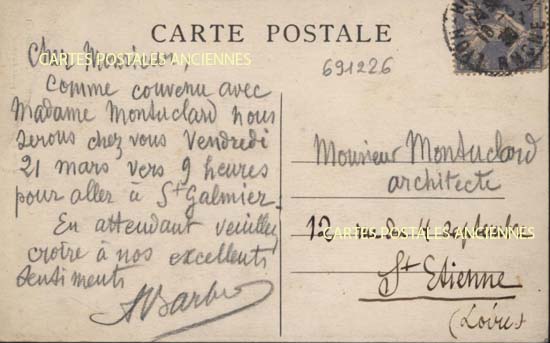 CARTE POSTALE
691226
Cher Monsieur,
CARTES POSTALES ANCIENNES
Comme convenu avec
Madame Montuclard nous
serons chez vous Vendredi
21 mars vers 9 heures
pour aller à St Galmier.
En attendant veuillez
croire à nos excellents
sentiments
ABarbe
Monsieur Montuclard
architecte
10 rue du 4 septembre
CARTES POSTALES ANCIENNES
St Etienne
(Loire)